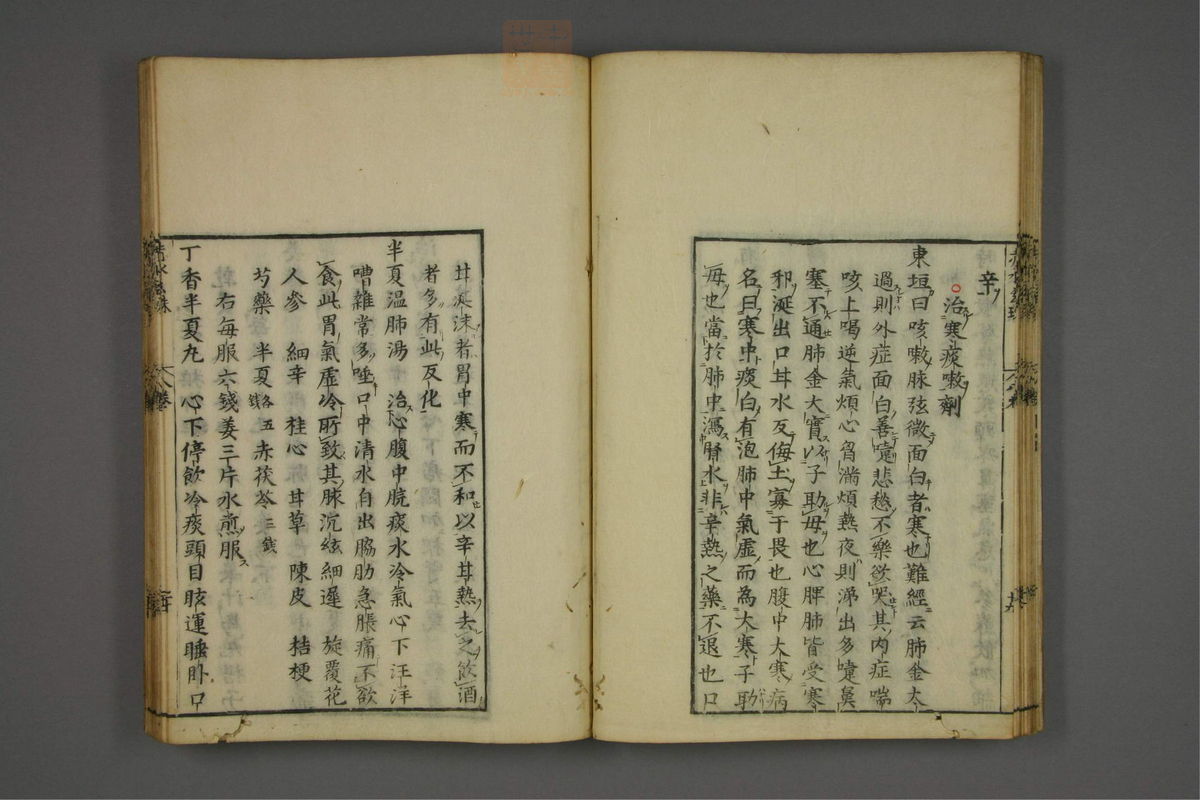 辛
治寒痰嗽劑
東垣曰咳嗽脉弦微面白者寒也難經云肺金太
過則外症面白善嚏悲愁不樂欲哭其内症喘
咳上喝逆氣煩心胷滿煩熱夜則涕出多嚏鼻
塞不通肺金大實以子助母也心脾肺皆受寒
邪涎出口甘水反侮土寡于畏也腹中大寒病
名曰寒中痰白有泡肺中氣虛而為大寒子助
母也當於肺中瀉腎水非辛熱之藥不退也口
甘涎沫者胃中寒而不和以辛甘熱去之飲酒
者多有此反化
半夏温肺湯 治心腹中脘痰水冷氣心下汪洋
嘈雜常多唾口中清水自出脇肋急脹痛不欲
食此胃氣虛冷所致其脉沉絃細遲 旋覆花
人參 細辛 桂心 甘草 陳皮 桔梗
芍藥 半夏各五錢 赤茯苓三錢
右每服六錢姜三片水煎服
丁香半夏丸 心下停飲冷痰頭目眩運睡卧口